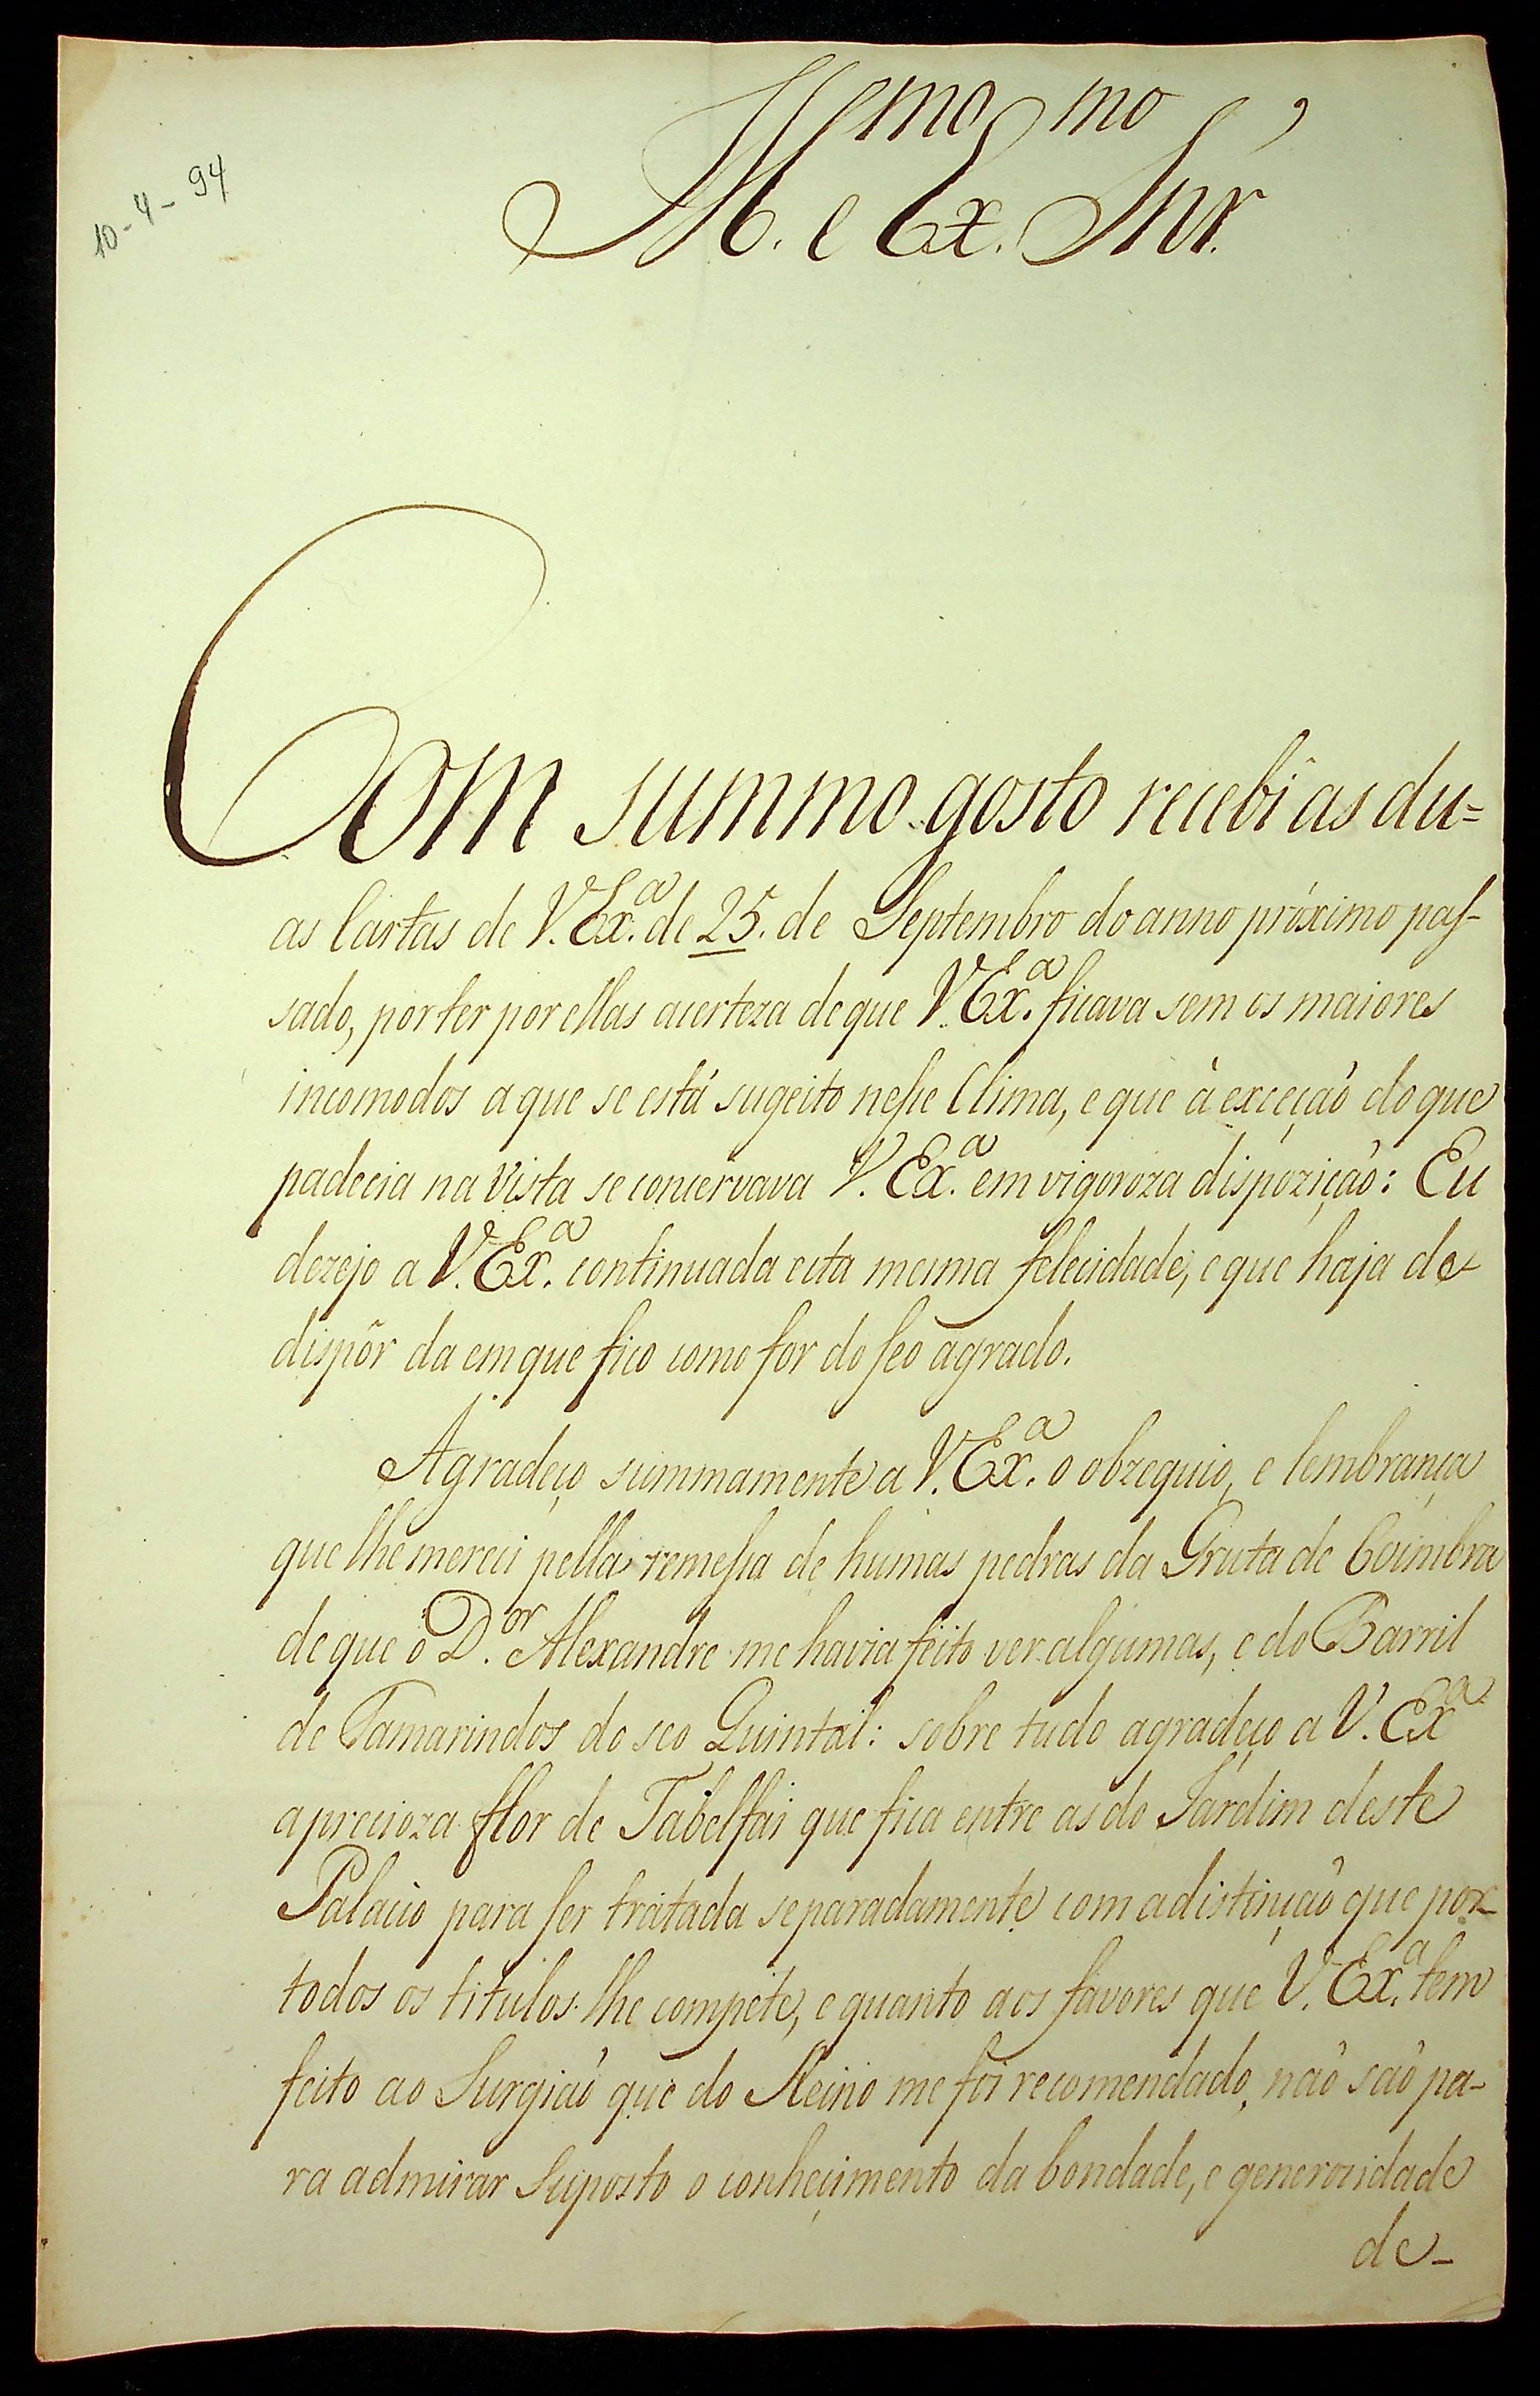 10-4-94
Ill.mo e Ex.mo Snr.
Com summo gosto recebî as du=
as Cartas de V. Ex.a de 25. de Septembro do anno próximo pas-
sado, por ter por ellas acerteza deque V. Ex.a ficava sem os maiores
incomodos aque se está sugeito nesse Clima, e que à exceçaõ do que
padecia na vista se conservava V. Ex.a em vigoroza dispoziçaõ: Eu
dezejo a V. Ex.a continuada esta mesma felecidade, e que haja de
dispôr da em que fico como for do seo agrado.
Agradeço summamente a V. Ex.a o obzequio, e lembrança
que lhe mereci pella remessa de humas pedras da Gruta de Coimbra
de que o D.or Alexandre me havia feito ver algumas, e do Barril
de Tamarindos do seo Quintal: sobre tudo agradeço a V. Ex.a
aprecioza flor de Tabelfai que fica entre as do Jardim deste
Palacio para ser tratada separadamente com adistinçaõ que por
todos os titulos lhe compete, e quanto aos favores que V. Ex.a tem
feito ao Surgiaõ que do Reino me foi recomendado, naõ saõ pa-
ra admirar Suposto o conheçimento da bondade, e generosidade
de-